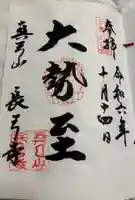 奉拝
令和六年
十月十四日
大勢至
真弓山
長弓寺